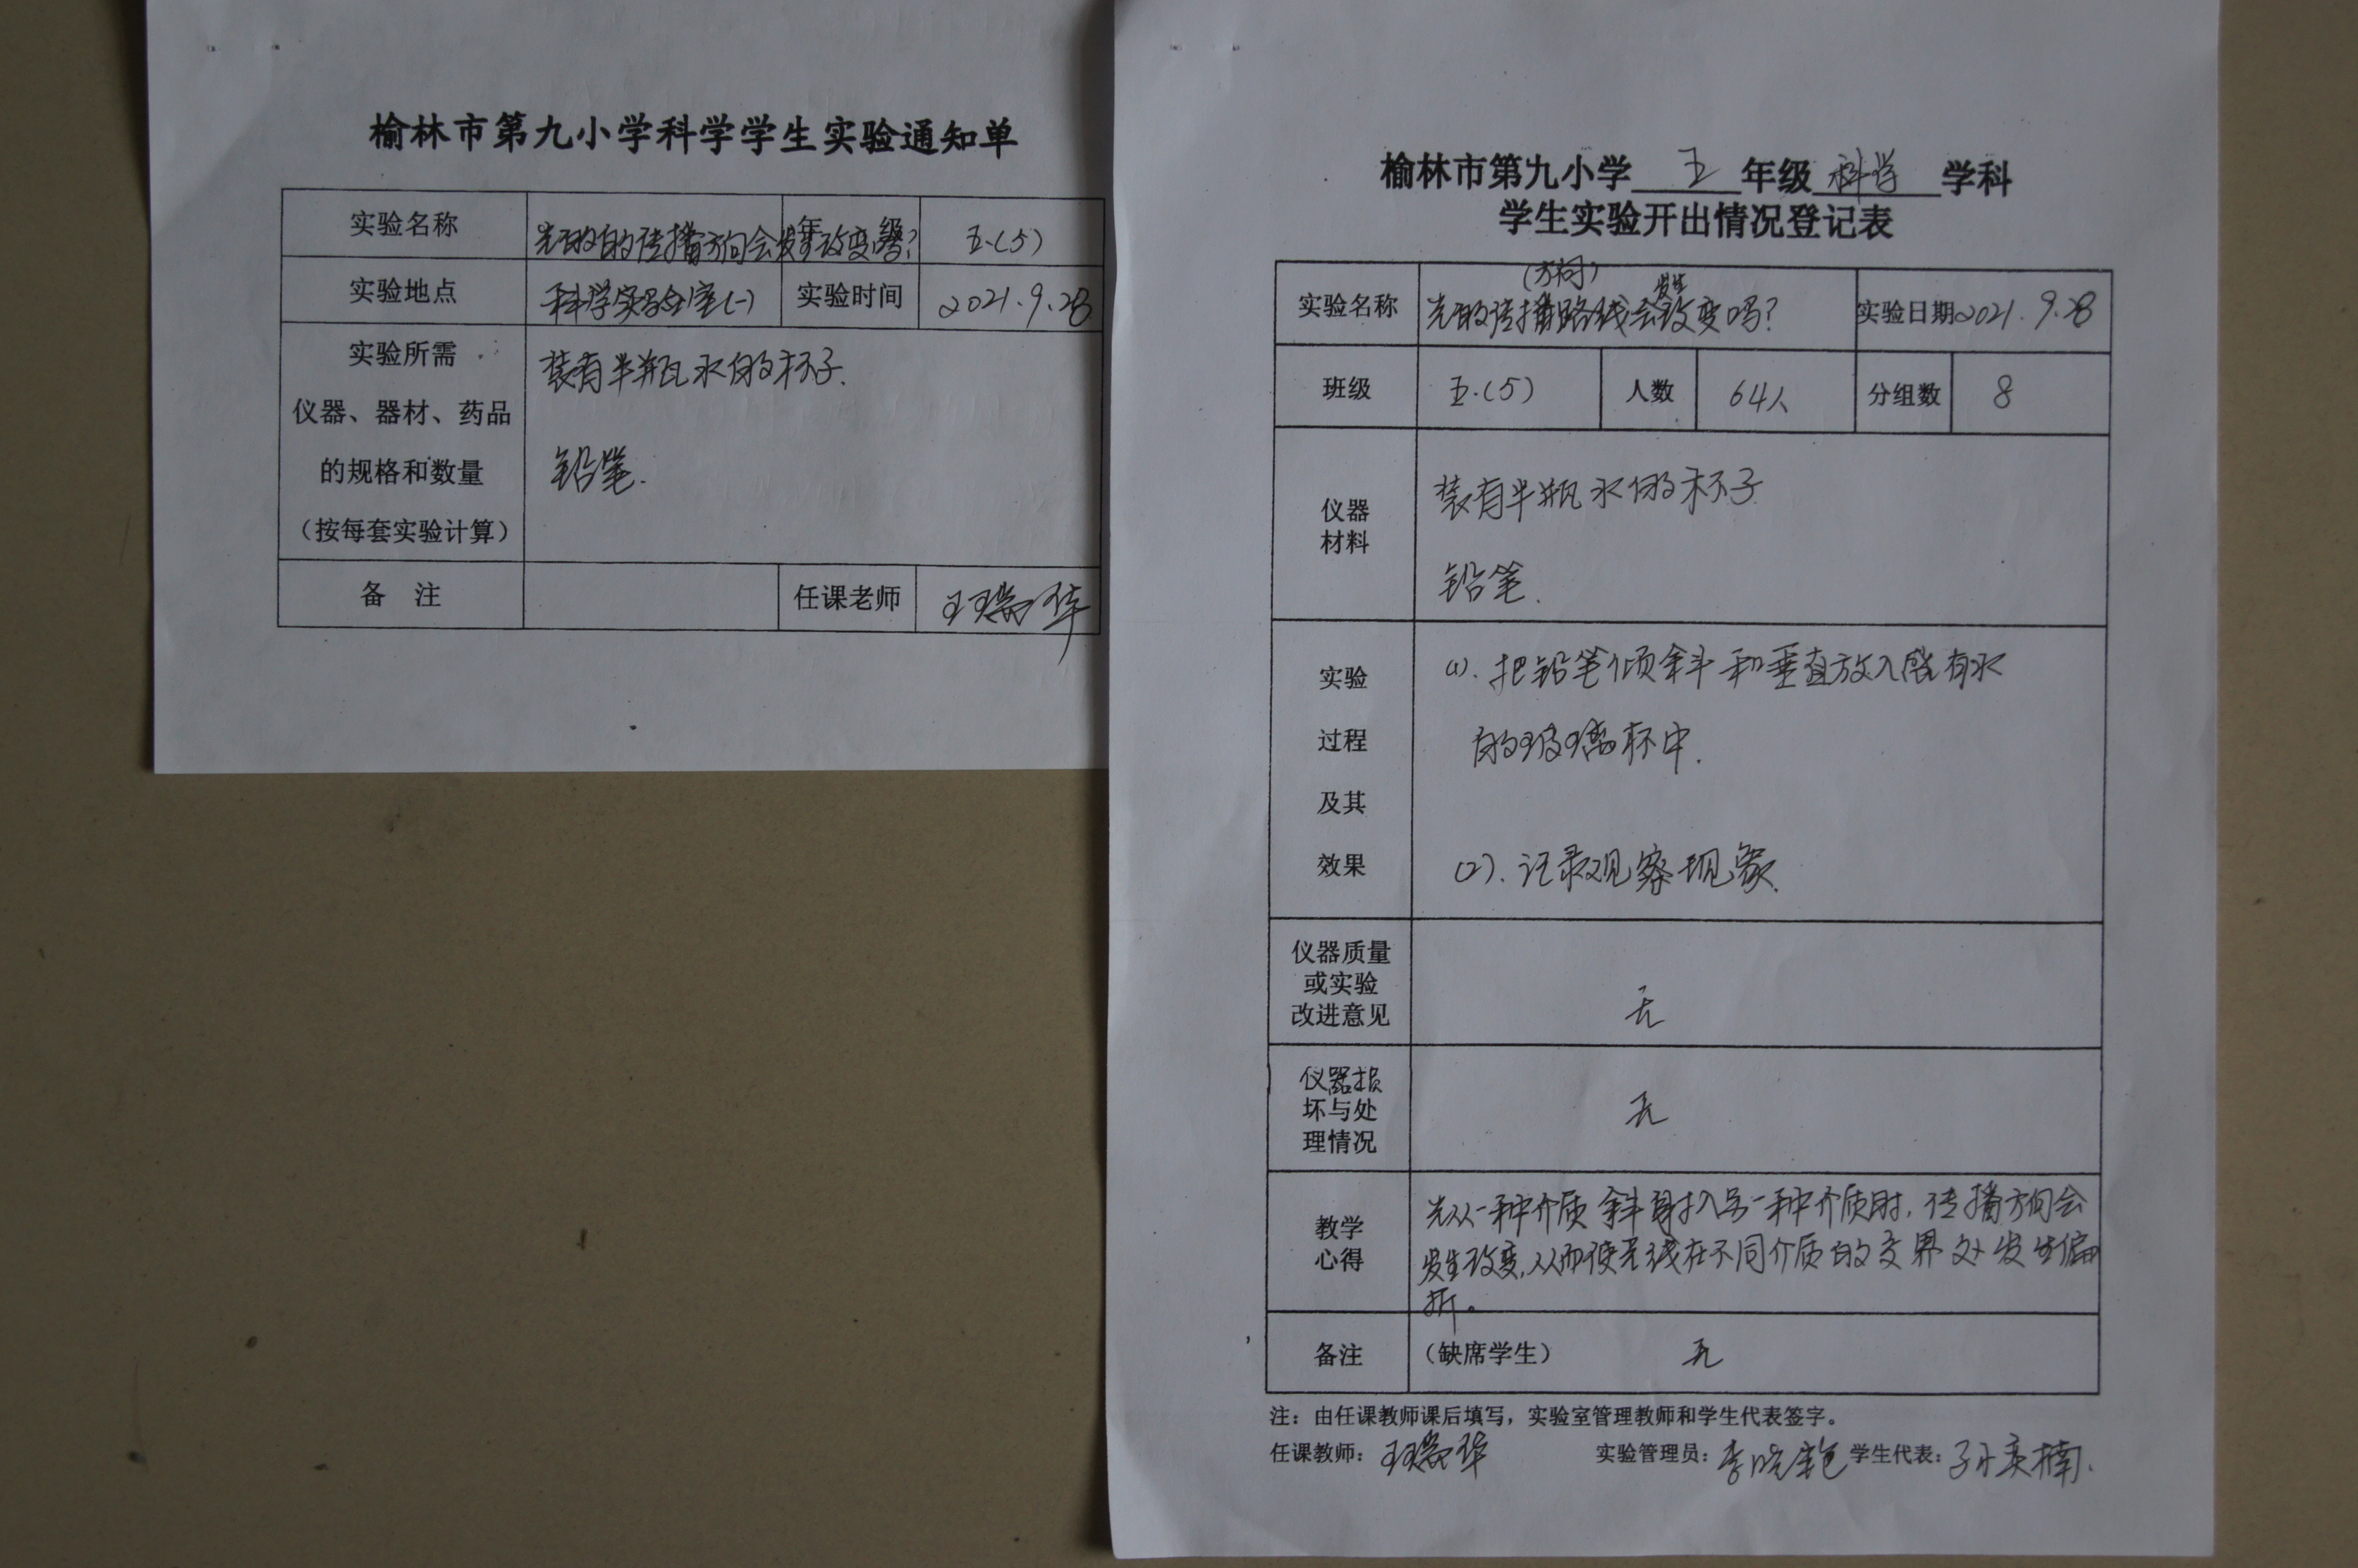 榆林市第九小学科学学生实验通知单
实验名称 光的的传播方向会发生改变吗? 年 级 五.(5)
实验地点 科学实验室(一) 实验时间 2021.9.28
实验所需
仪器、器材、药品
的规格和数量
(按每套实验计算)
装有半瓶水的杯子.
铅笔.
备 注 任课老师 王瑞华
榆林市第九小学 五 年级 科学 学科
学生实验开出情况登记表
(方向) 发生
实验名称 光的传播路线会改变吗? 实验日期 2021.9.28
班级 五.(5) 人数 64人 分组数 8
仪器
材料
装有半瓶水的杯子
铅笔.
实验
过程
及其
效果
(1).把铅笔倾斜和垂直放入盛有水
的玻璃杯中.
(2).记录观察现象.
仪器质量
或实验
改进意见
无
仪器损
坏与处
理情况
无
教学
心得
光从一种介质斜射入另一种介质时,传播方向会
发生改变,从而使光线在不同介质的交界处发生偏
折。
备注 (缺席学生) 无
注:由任课教师课后填写,实验室管理教师和学生代表签字。
任课教师: 王瑞华 实验管理员: 李晓艳 学生代表: 孙奕楠.